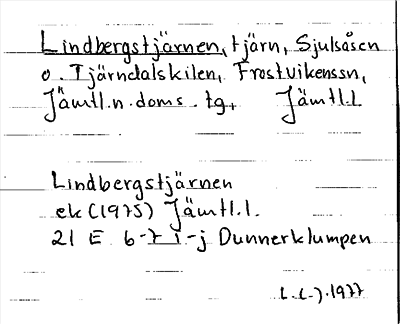 Lindbergstjärnen, tjärn, Sjulsåsen
o. Tjärndalskilen, Frostvikenssn,
Jämtl.n.doms.tg, Jämtl.l.
Lindbergstjärnen
ek (1975) Jämtl.l.
21 E 6-7 i-j Dunnerklumpen
L.L-J.1977